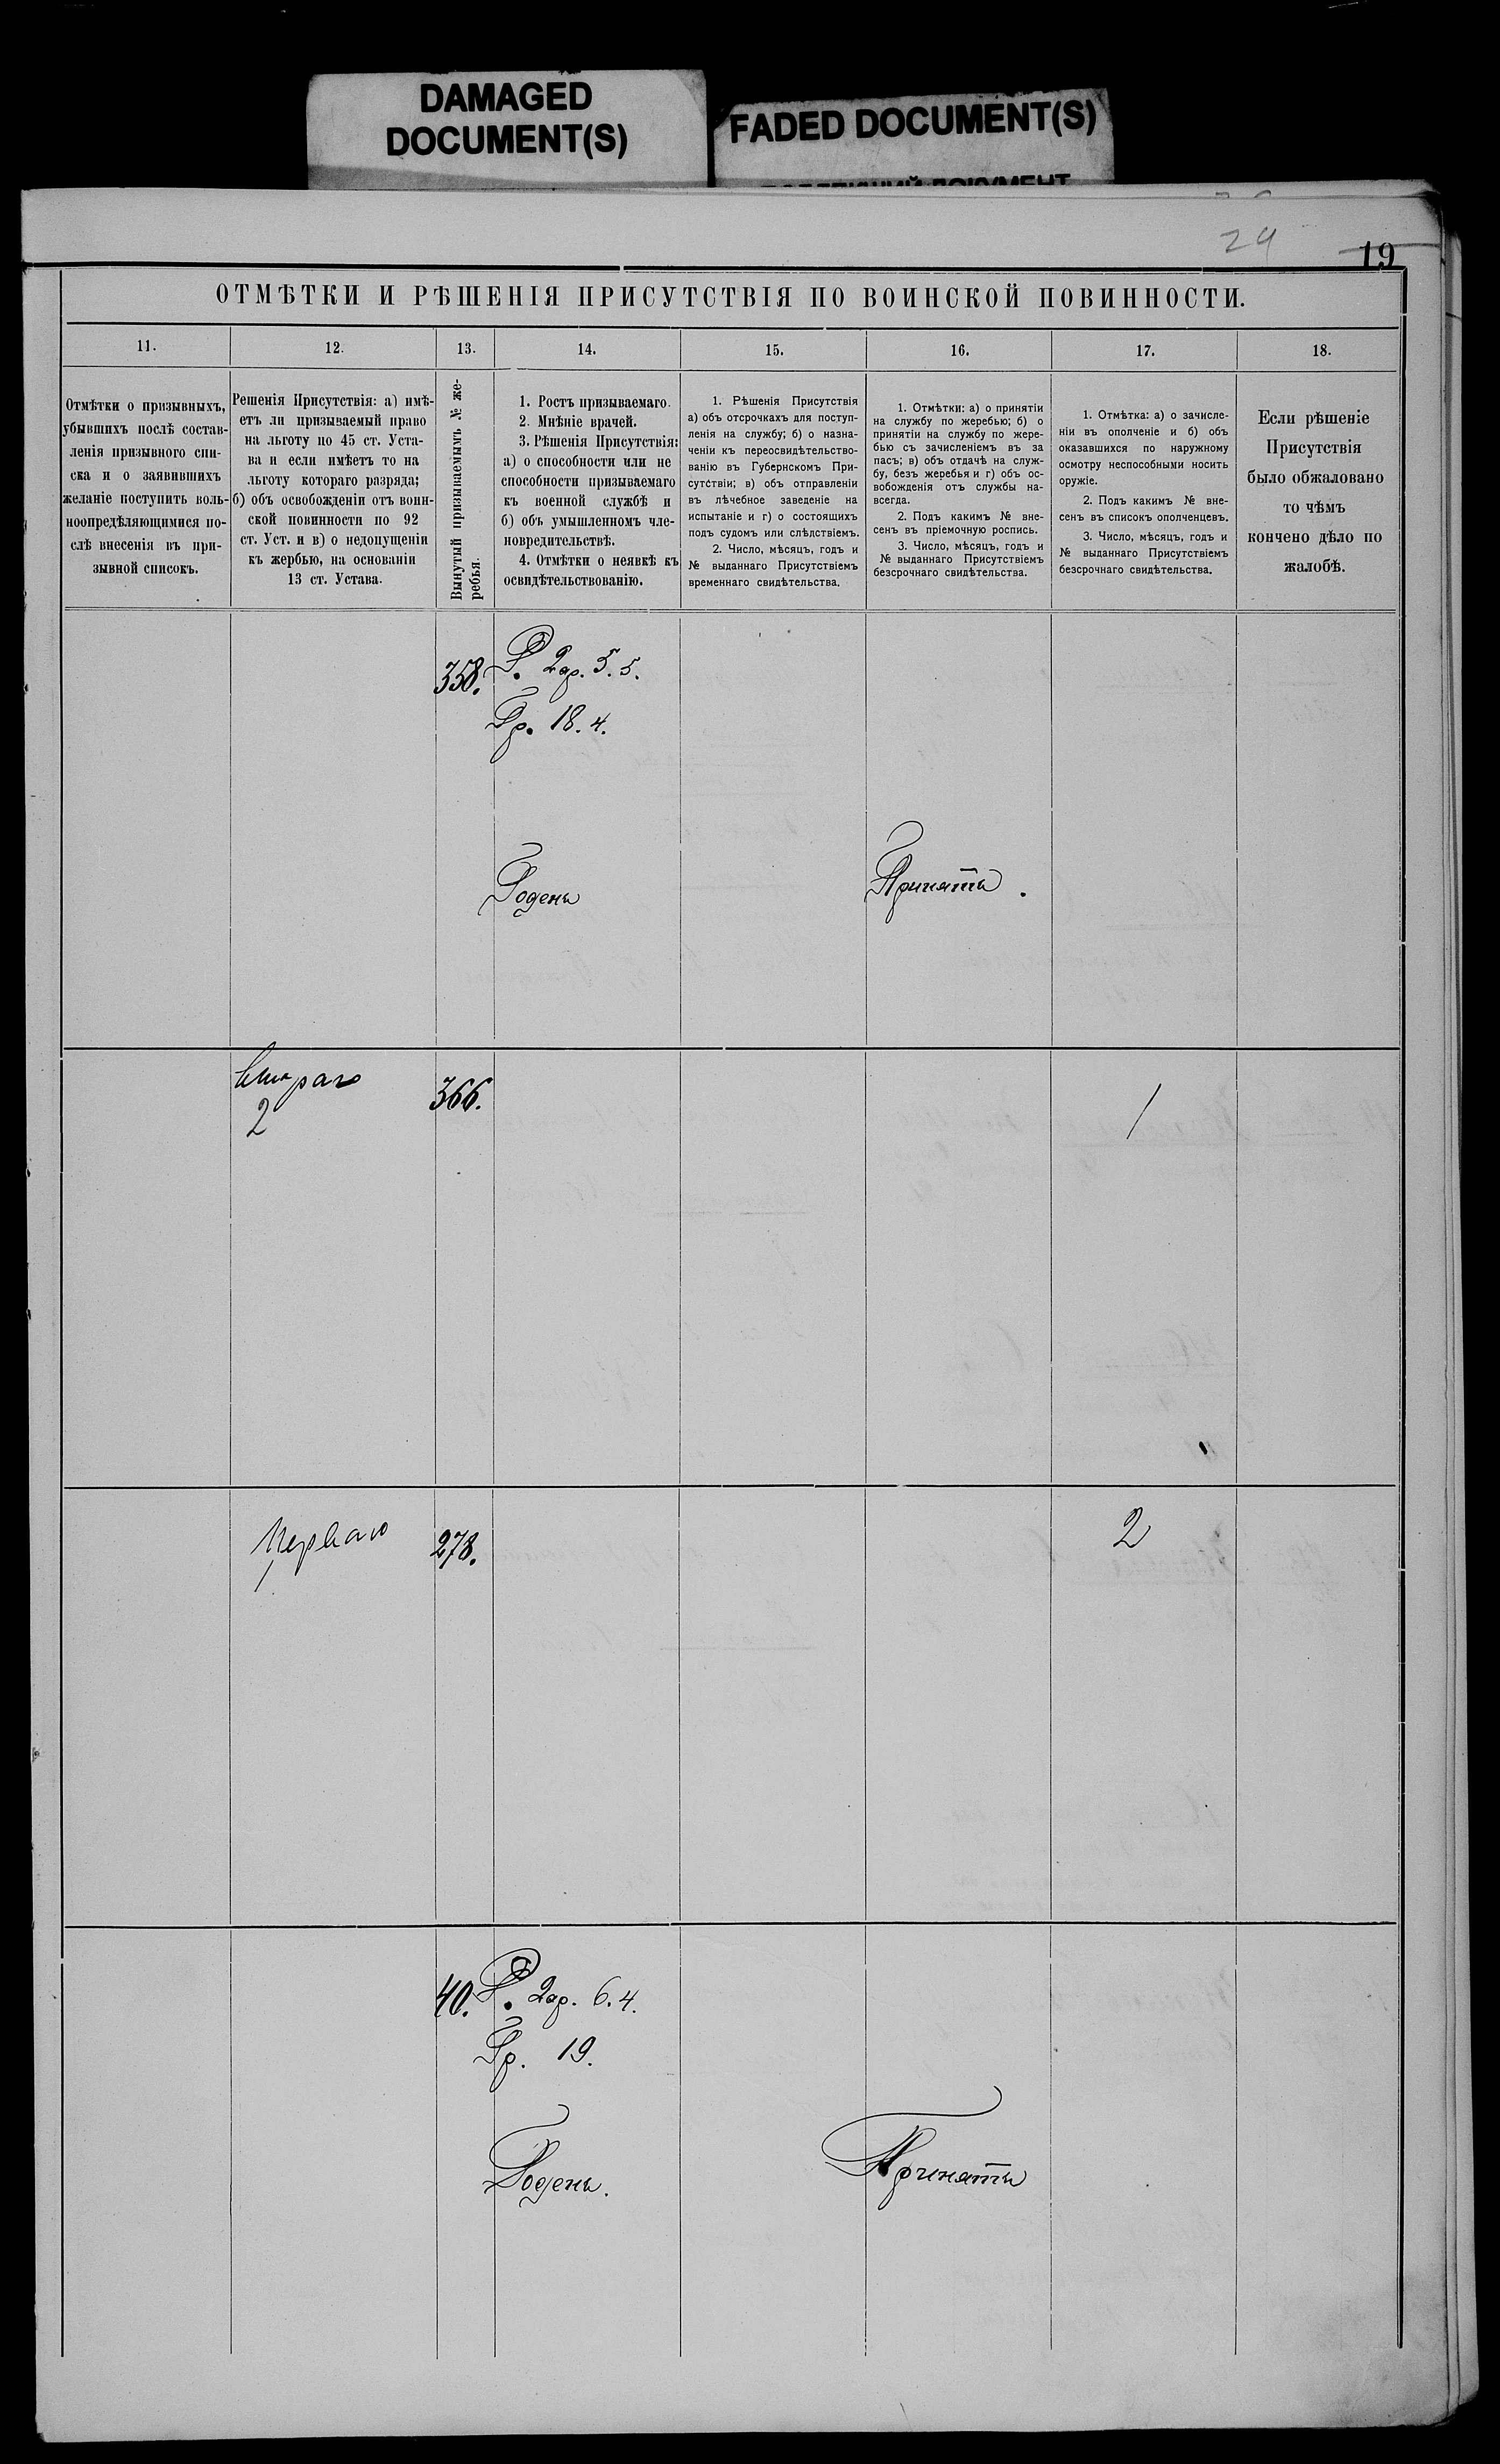 DAMAGED
DOCUMENT(S)
FADED DOCUMENT(S)
29
19
ОТМѢТКИ И РѢШЕНІЯ ПРИСУТСТВІЯ ПО ВОИНСКОЙ ПОВИННОСТИ.
11.
Отмѣтки о призывныхъ,
убывшихъ послѣ состав-
ленія призывного спи-
ска и о заявившихъ
желаніе поступить воль-
ноопредѣляющимися по-
слѣ внесенія въ при-
зывной списокъ.
12.
Решенія Присутствія: а) имѣ-
етъ ли призываемый право
на льготу по 45 ст. Уста-
ва и если имѣетъ то на
льготу котораго разряда;
б) объ освобожденіи отъ воин-
ской повинности по 92
ст. Уст. и в) о недопущеніи
къ жербью, на основаніи
13 ст. Устава.
13.
Вынутый призываемымъ № же-
ребья.
14.
1. Ростъ призываемаго.
2. Мнѣніе врачей.
3. Рѣшенія Присутствія:
а) о способности или не
способности призываемаго
къ военной службѣ и
б) объ умышленномъ чле-
новредительствѣ.
4. Отмѣтки о неявкѣ къ
освидѣтельствованію.
15.
1. Рѣшенія Присутствія
а) объ отсрочкахъ для поступ-
ленія на службу; б) о назна-
ченіи къ переосвидѣтельство-
ванію въ Губернскомъ При-
сутствіи; в) объ отправленіи
въ лѣчебное заведеніе на
испытаніе и г) о состоящихъ
подъ судомъ или слѣдствіемъ.
2. Число, мѣсяцъ, годъ и
№ выданнаго Присутствіемъ
временнаго свидѣтельства.
16.
1. Отмѣтки: а) о принятіи
на службу по жеребью; б) о
принятіи на службу по жере-
бью съ зачисленіемъ въ за
пасъ; в) объ отдачѣ на служ-
бу, безъ жеребья и г) объ ос-
вобожденія отъ службы на-
всегда.
2. Подъ какимъ № вне-
сенъ въ пріемочную роспись.
3. Число, мѣсяцъ, годъ и
№ выданнаго Присутствіемъ
безсрочнаго свидѣтельства.
17.
1. Отмѣтка: а) о зачисле-
ніи въ ополченіе и б) объ
оказавшихся по наружному
осмотру неспособными носить
оружіе.
2. Подъ какимъ № вне-
сенъ въ списокъ ополченцевъ.
3. Число, мѣсяцъ, годъ и
№ выданнаго Присутствіемъ
безсрочнаго свидѣтельства.
18.
Если рѣшеніе
Присутствія
было обжаловано
то чѣмъ
кончено дѣло по
жалобѣ.
358.
Р. 2ар. 5. 5.
Гр. 18. 4.
Годенъ
Принятъ.
втораго
2
366.
1
Перваго
1
278.
2
40.
Р. 2ар. 6. 4.
Гр. 19.
Годенъ.
Принятъ